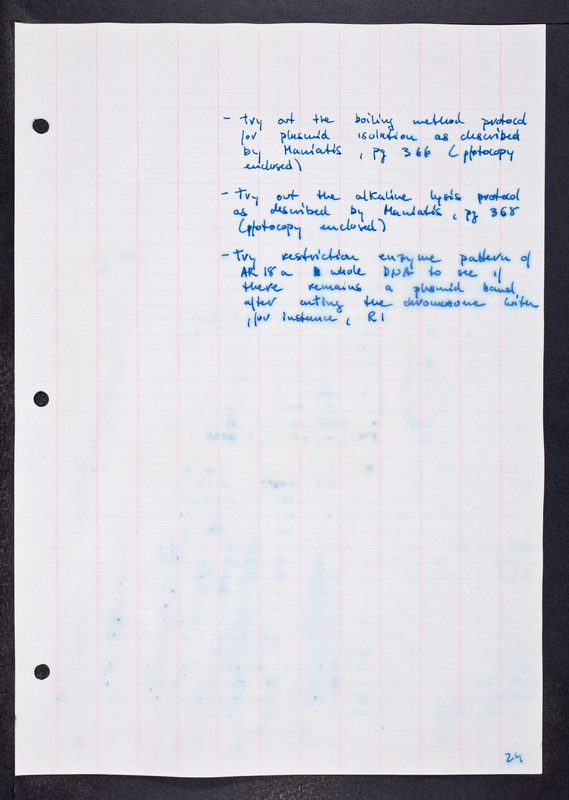 - Try out the boiling method protocol
for plasmid isolation as described
by Maniatis, pg 366 (photocopy
enclosed)
- Try out the alkaline lysis protocol
as described by Maniatis, pg 368
(photocopy enclosed)
- Try restriction enzyme pattern of
AR 18 a whole DNA to see if
there remains a plasmid band
after cutting the chromosome with
, for instance, R1
24